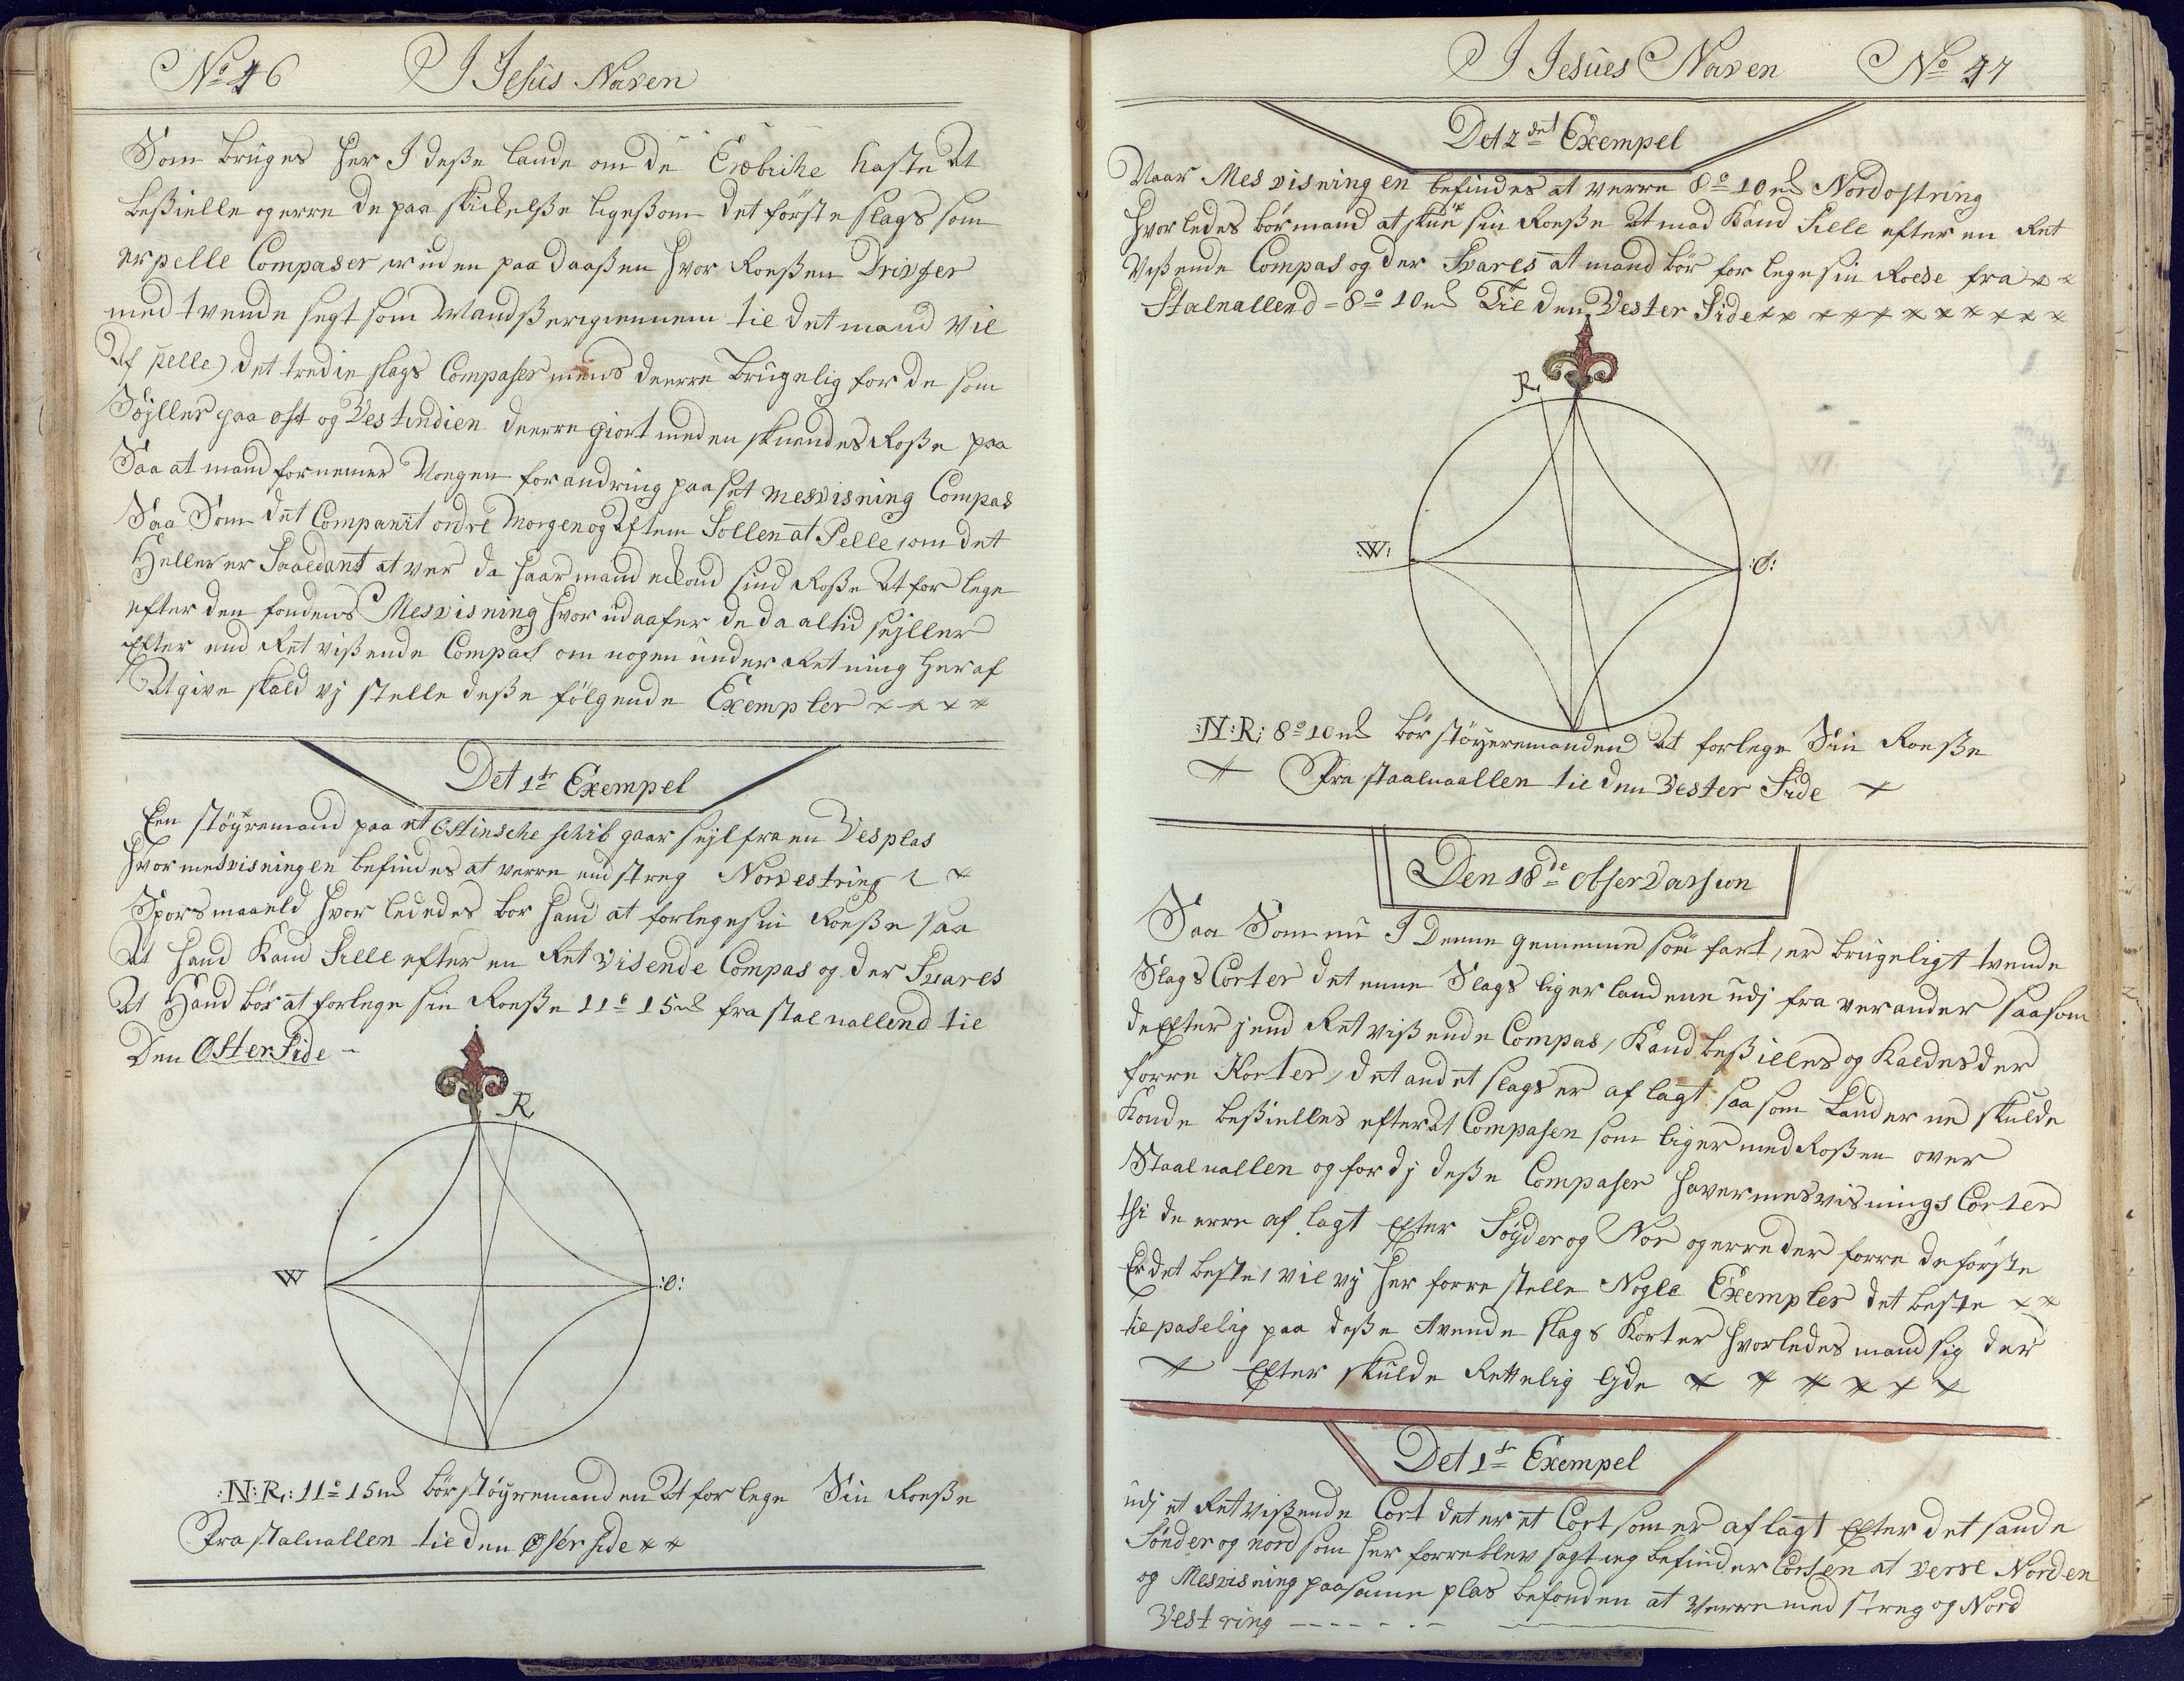 No 46 I Jesus Naven
Som bruges her I deße lande om de Erobrihe haste At
beßielle og erre de paa skickelße ligeßom det förste slags som
er pelle Compaser er uden paa daaßen hvor Roeßen Drivfer
med tvende sigt som Mand ser igiennem til det mand vil
Af pelle) det tredie slags Compaser mens de erre brugelig for de som
Söjller paa ost og Vestindien de erre giort med en skuendes Roße paa
Saa at mand fornemer Nogen forandring paa set mesvisning Compas
Saa Som det Companit ordre Morgen og Aften Sollen at Pelle om det
Heller er Saaledant at ver da haar mand sind Roße At for lege
efter den fondens Mesvisning hvor udaafer de da altid sejller
Efter end Ret vißende Compas om nogen under Retning her af
At give skald vj stelle deße fölgende Exempler
Det 1te Exempel
Een störremand paa et Ostinsche schib gaar sejl fra en Ves plas
hvor mesvisningen befindes at verre end streg Norvestring
Sporsmaaeld hvor lededes bor hand at forlege sin Roeße saa
At hand Kand Sille efter en Ret Visende Compas og der Svares
At Hand bör at forlege sin Roeße 11o 15m fra stalnallend til
Den Oster Side
R
W
:O:
:N:R: 11o 15m bör störremanden At for lege Sin Roeße
Fra stalnallen til den Oster side
I Jesues Naven No 47
Det 2det Exempel
Naar Mesvisningen befindes at verre 8o 10m Nordostring
hvorledes bör mand at skue sin Roeße At mad Kand Sille efter en Ret
Vißende Compas og der Svares at mand bör for lege sin Roese fra
Stalnallend = 8o 10m Til den Vester Side
R
:W:
:O:
:N:R: 8o 10m bör störremanden At forlege Sin Roeße
Fra staalnaallen til den Vester Side
Den 18de Observassion
Saa Som nu I Denne gemenne söe fart, er brugeligt tvende
Slags Corter det enne Slags liger landene udj fra verander saasom
de Efter j end Ret vißende Compas, Kand beßilles og Kaldes der
forre Korter, det andet slags er af lagt saasom Landerne skulde
Konde beßielles efter At Compasen som liger med Roßen over
Staalnallen og fordj deße Compaser haver mesvisnings Corter
thi de erre af lagt Efter Söyder og Nor og erre der forre de förste
Er det beste, vil vj her forre stelle Nogle Exempler det beste
til paselig paa deße tvende slags Korter hvorledes mand sig der
Efter skulde Rettelig lyde
Det 1te Exempel
udj et Ret vißende Cort det er et Cort som er aflagt Efter det sande
Sönder og nord som her forre blev sagt ieg befinder Corsen at verre Norden
og Mesvisning paa samme plas befonden at Verre med streg og Nord
Vestring